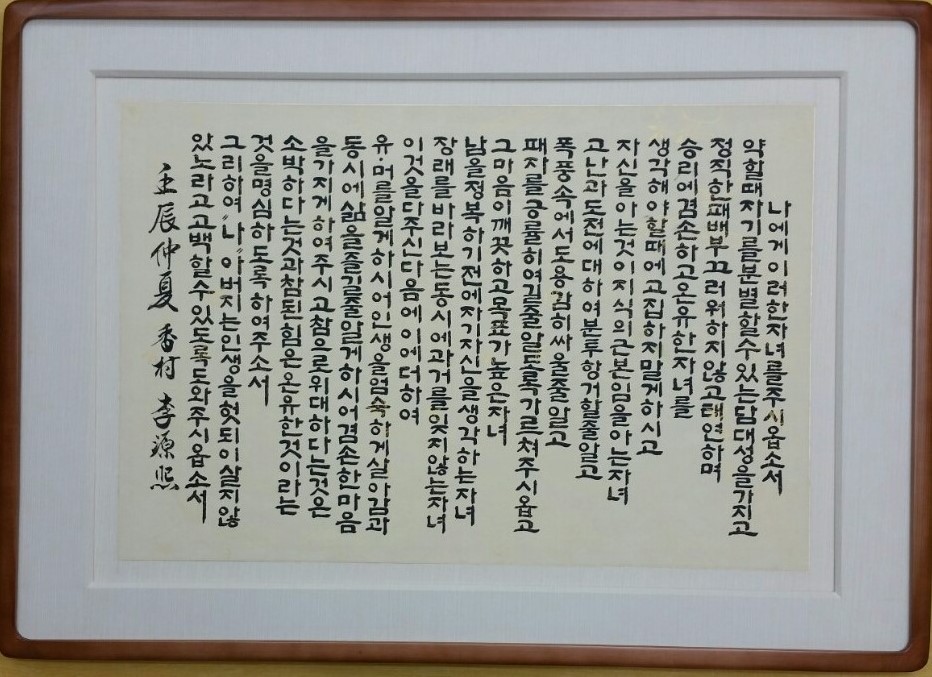 나에게 이러한 자녀를 주시옵소서
약할때 자기를 분별할수있는 담대성을 가지고
정직한 패배 부끄러워하지 않고 태연하며
승리에 겸손하고 온유한 자녀를
생각해야할때에 고집하지말게하시고
자신을 아는것이 지식의 근본임을 아는 자녀
고난과 도전에 대하여 분투항거할줄알고
폭풍속에서도 용감히 싸울줄알고
패자를 긍률히여길줄알도록 가르쳐주시옵고
그마음이 깨끗하고 목표가 높은 자녀
남을 정복하기전에 자기자신을 생각하는 자녀
장래를 바라보는 동시에 과거를 잊지않는 자녀
이것을 다주신다음에 이에더하여
유·머를 알게하시어 인생을 엄숙하게 살아감과
동시에 삶을 즐길줄알게하시어 겸손한마음
을 가지게하여주시고 참으로 위대하다는것은
소박하다는것과 참된힘은 온유한것이라는
것을 명심하도록 하여주소서
그리하여 〃나〃아버지는 인생을 헛되이 살지않
았노라고 고백할수있도록 도와주시옵소서
壬辰仲夏 香村 李源熙